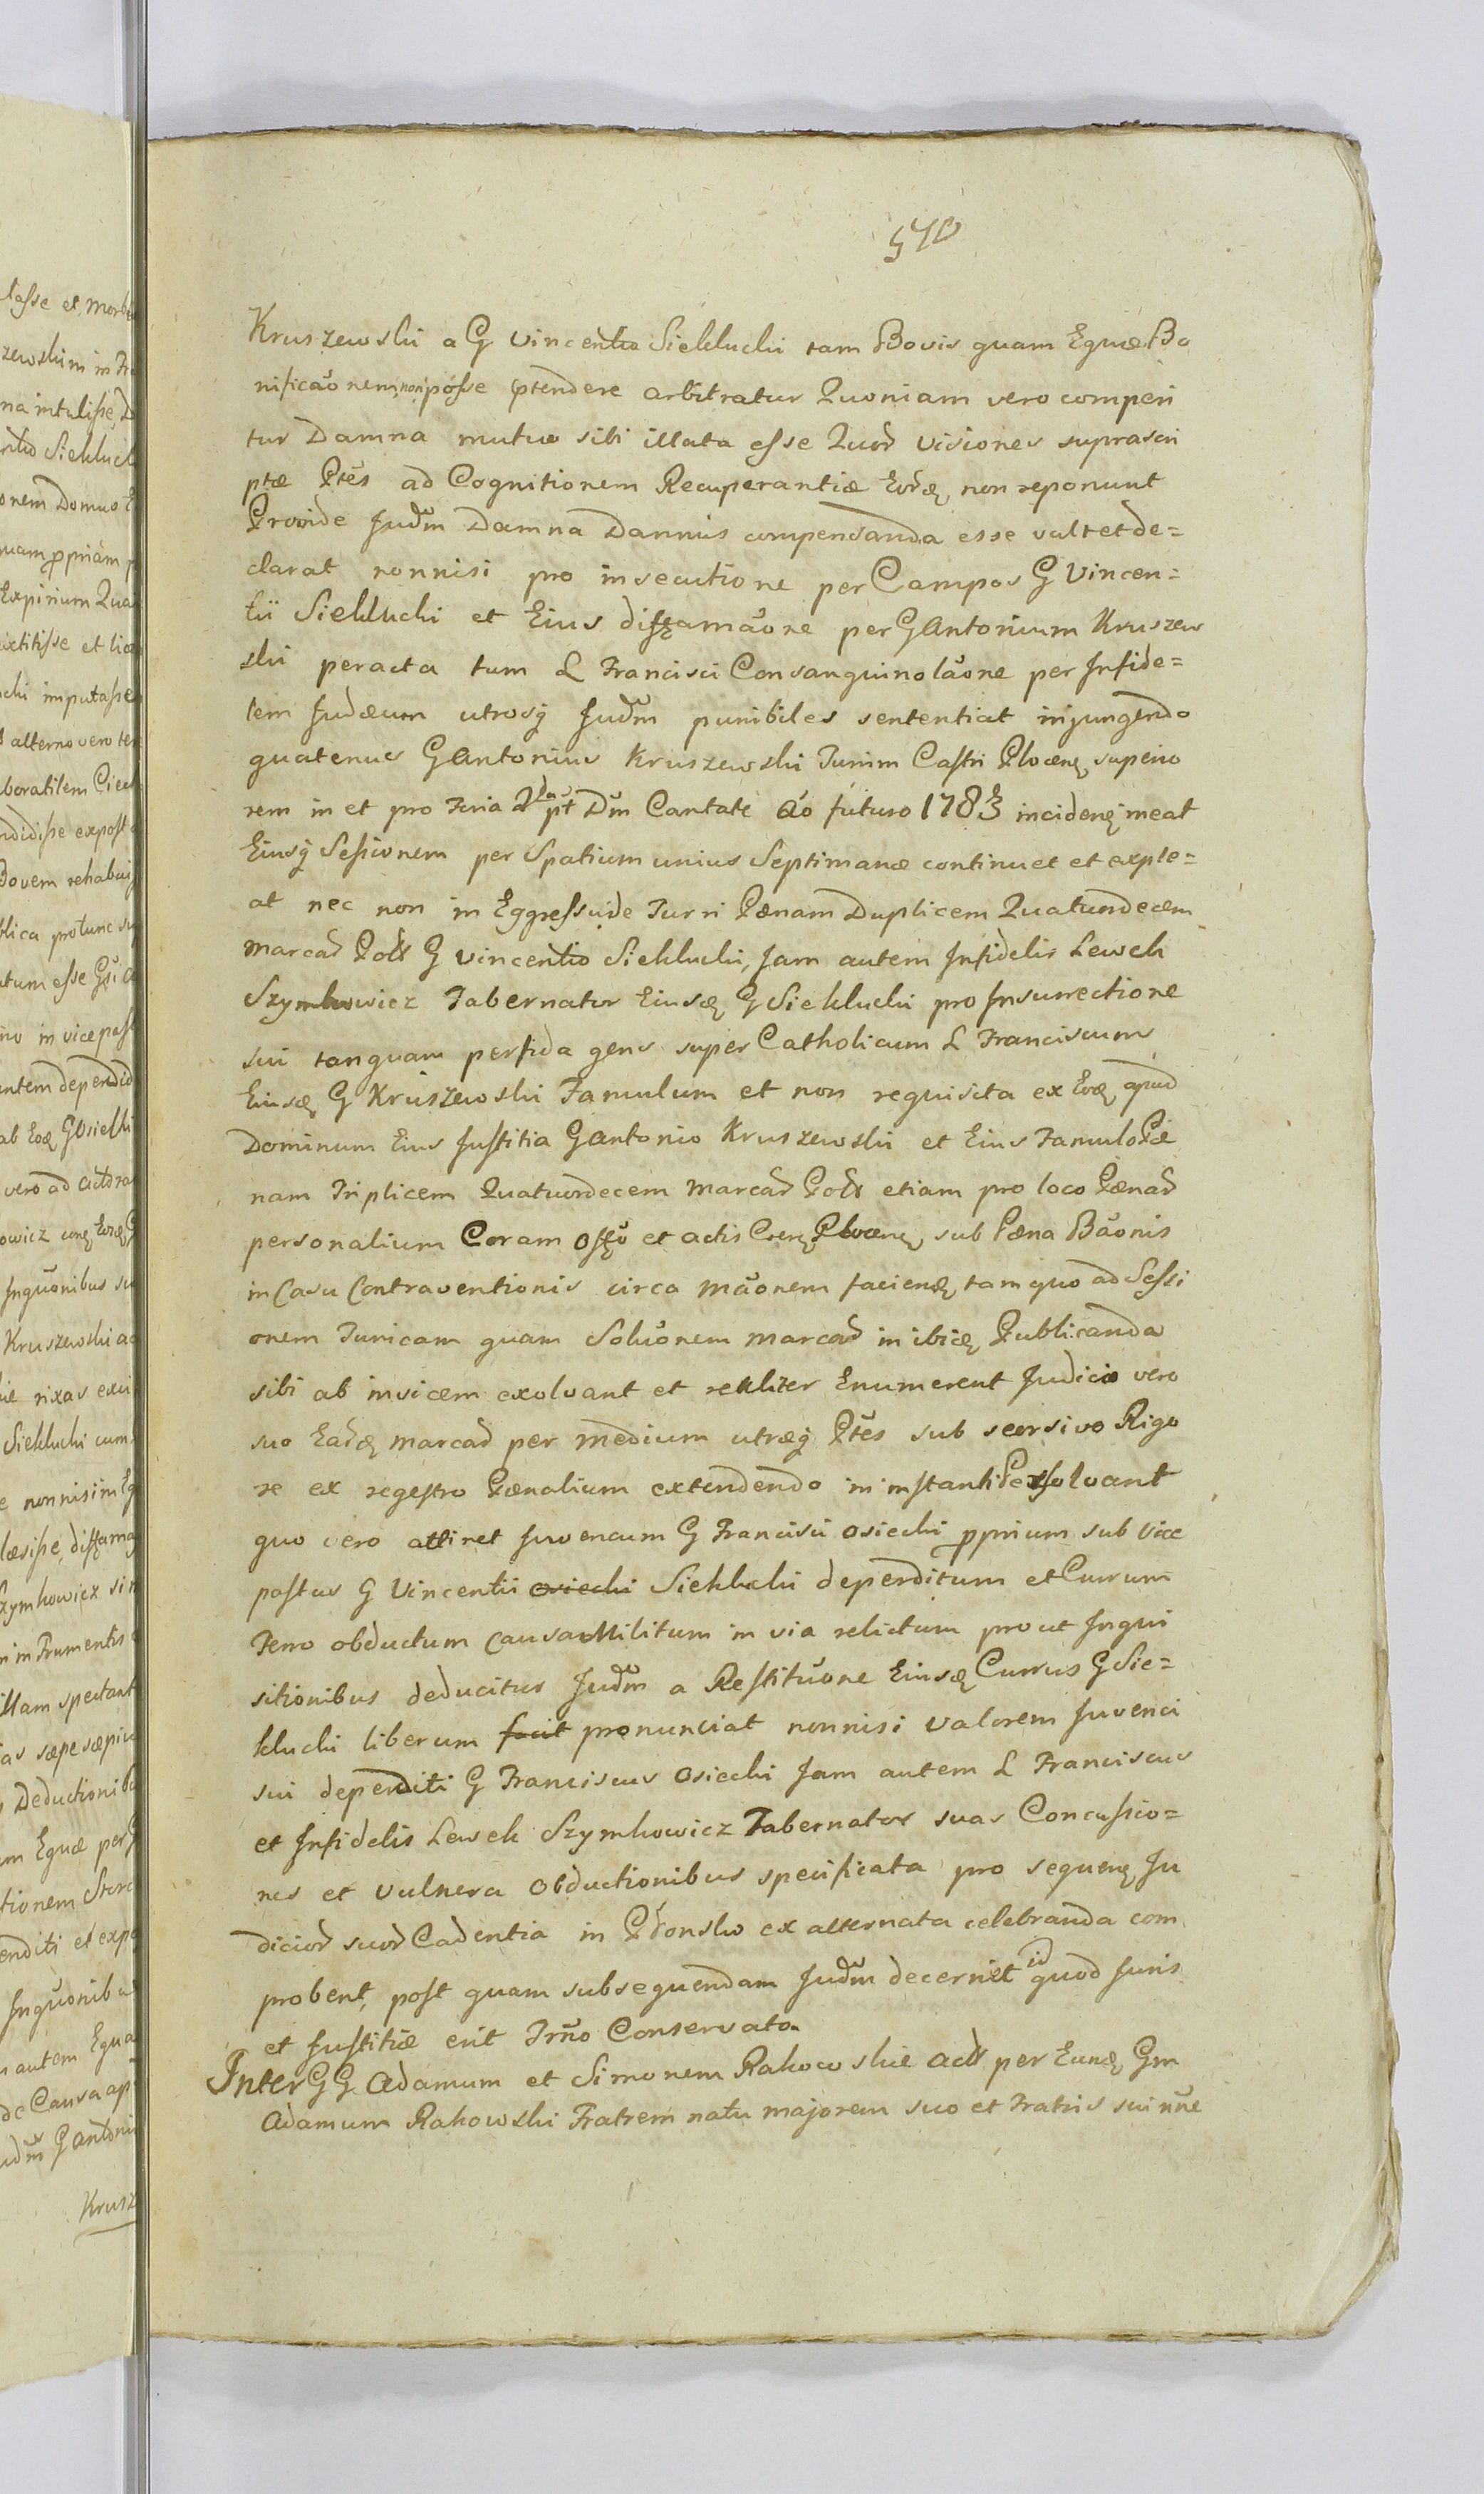 540
Kruszewski a G Vincentio Siekłucki tam Bovis quam Equæ Bo
nificãonem non posse prtendere arbitratur Quoniam vero comperi
tur Damna mutuo sibi illata esse Quod Visiones suprascri
ptæ Ptes ad Cognitionem Recuperantiæ Eorđ, non reponunt
Proinde Judm Damna Damnis compensanda esse vult et de=
clarat nonnisi pro insecutione per Campos G Vincen=
tii Siekłucki et Eius diffamãone per G Antonium Kruszew
ski peracta tum L Francisci Consanguinolãone per Infide=
lem Judæum utrosq Judm punibiles sententiat injungendo
quatenus G Antonius Kruszewski Turrim Castri Plocen superio
rem in et pro Feria 2da pt Dm Cantate Ao futuro 1783 inciden meat
Eiusq Sessionem per Spatium unius Septimanæ continuet et exple=
at nec non in Eggressu de Turri Pænam Duplicem Quatuordecem
Marcas Pols G Vincentio Siekłucki, Jam autem Infidelis Lewek
Szymkowicz Tabernator Eiusđ G Siekłucki pro Insurrectione
sui tanquam perfida gens super Catholicum L Franciscum
Eiusđ G Kruszewski Famulum et non requisita ex Eođ apud
Dominum Eius Justitia G Antonio Kruszewski et Eius Famulo Pæ
nam Triplicem Quatuordecem Marcas Pols etiam pro loco Pænas
personalium Coram Offo et Actis Cren Plocen sub Pæna Bãonis
in Casu Contraventionis circa mãonem facienđ tam quo ad Sessi
onem Turricam quam Soluõnem marcas in ibiđ Publicanda
sibi ab invicem exolvant et realiter Enumerent Judicio vero
suo Easđ marcas per medium utræq Ptes sub seorsivo Rigo
re ex regestro Pænalium extendendo in instanti Persolvant
quo vero attinet Juvencum G Francisci Osiecki pprium sub Vice
pastus G Vincentii Osiecki Siekłucki deperditum et Currum
Ferro obductum Causa Militum in via relictum prout Inqui
sitionibus deducitur Judm a Restituõne Eiusđ Currus G Sie=
kłucki liberum facit pronunciat nonnisi Valorem Juvenci
sui deperditi G Franciscus Osiecki Jam autem L Franciscus
et Infidelis Lewek Szymkowicz Tabernator suas Concussio=
nes et Vulnera Obductionibus specificata pro sequen Ju
dicios suos Cadentia in Płońsko ex alternata celebranda com
probent, post quam subsequendam Judm decernet id quod Juris
et Justitiæ erit Trno Conservato
Inter GG Adamum et Simonem Rakowskie Acts per Eunđ Gm
Adamum Rakowski Fratrem natu majorem suo et Fratris sui nne